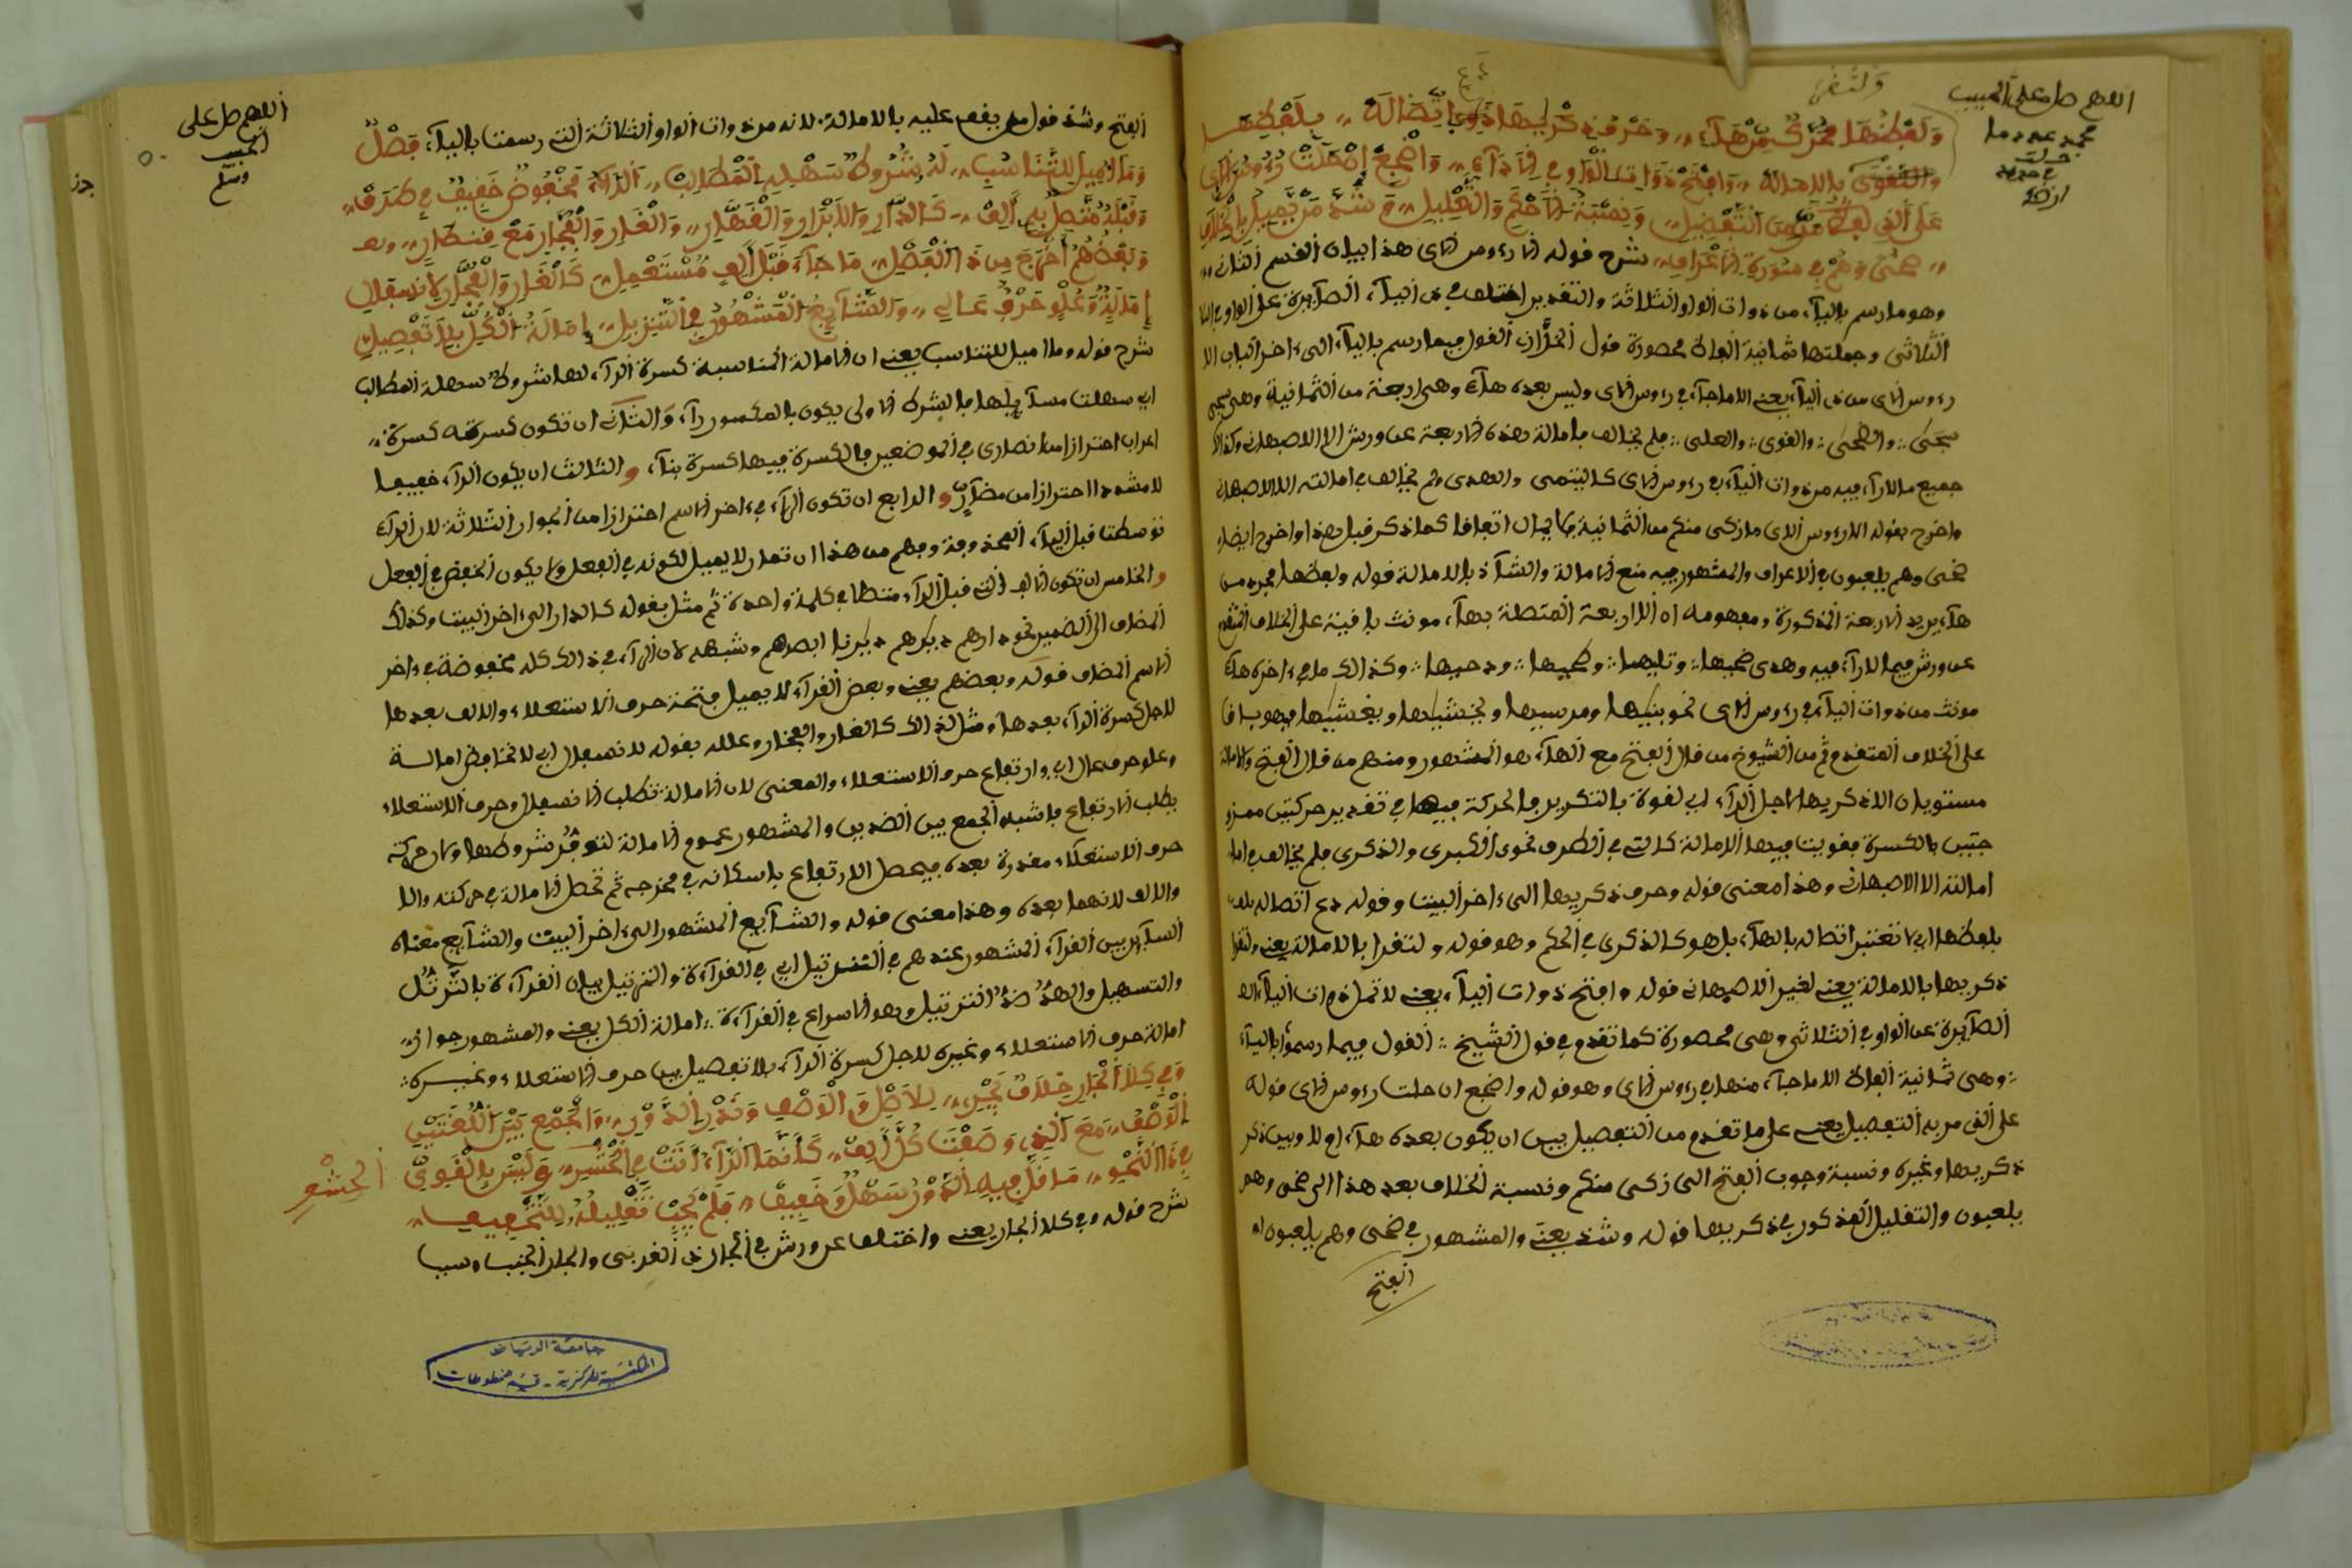 اللهم صل على الحبيب
محمد عدد ما
ولفظها مجرد من هاء وحرف ذكريها دع اتصاله بلفظها
والتقوى بالاماله وافتح ذوات الواو في الاداء واضجع ان حلت رءوس الاي
على الذي مر من التفضيل ونسبة الاحكم والتقليل وشذ من يميل بالخلاف
ضحى وهم في سورة الاعراف شرح قوله الا رءوس الاي هذا بيان القسم الثاني
وهو ما رسم بالياء من ذوات الواو الثلاثة والتقدير اختلف في ذي الياء الصآيرة عن الواو في
الثلاثي وجملتها ثمانية الفاظ محصورة قول الخراز القول فيما رسم بالياء الى اخر الباب الا
رءوس الاي من ذي الياء يعني الا ما جاء في رءوس الاي وليس بعده هاء وهي اربعة من الثمانية وهي سجى
سجى والضحى والقوى والعلى فلم يخالف بامالة هذه الاربعة عن ورش الا الاصبهاني وكذالك
جميع ما لا راء فيه من ذوات الياء في رءوس الاي كاليتمى والهدى ولم يخالف في امالته الا الاصبهاني
واخرج بقوله الا رءوس الاي ما زكى منكم من الثمانية فلا يمال اتفاقا كما ذكر قبل هذا واخرج ايضا
ضحى وهم يلعبون في الاعراف والمشهور فيه منع الامالة والشآذ بالامالة قوله ولفظها مجرد من
هاء يريد الاربعة المذكورة ومفهومه ان الاربعة المتصلة بهاء مونث باقية على الخلاف المتقدم
عن ورش فيما لا راء فيه وهي ضحيها وتليها وطحيها ودحيها وكذالك ما في ءاخره هاء
مونث من ذوات الياء في رءوس الاي نحو بنيها ومرسيها ويخشيها ويغشيها فهو باق
على الخلاف المتقدم فمن الشيوخ من قال الفتح مع الهاء هو المشهور ومنهم من قال الفتح والامالة
مستويان الا ذكريها لاجل الراء اي لقوة بالتكرير فالحركة فيها في تقدير حركتين ممزو
جتين بالكسرة فقويت فيها الامالة كالتي في الطرف نحو الكبرى والذكرى فلم يخالف في
امالته الا الاصبهاني وهذا معنى قوله وحرف ذكريها الى ءاخر البيت وقوله دع اتصاله بلفظ
بلفظها اي لا تعتبر اتصاله بالهاء بل هو كالذكرى في الحكم وهو قوله ولتقرا بالامالة يعني ولتقرا
ذكريها بالامالة يعني لغير الاصبهاني قوله وافتح ذوات الياء يعني لا تمل ذوات الياء
الصآيرة عن الواو في الثلاثي وهي محصورة كما تقدم في قول الشيخ القول فيما رسموا بالياء
وهي ثمانية الفاظ الا ما جاء منها في رءوس الاي وهو قوله واضجع ان حلت رءوس الاي قوله
على الذي مر به التفصيل يعني على ما تقدم من التفصيل بين ان يكون بعده هاء ام لا وبين ذكر
ذكريها وغيره ونسبة وجوب الفتح الى زكى منكم ونسبة الخلاف بعد هذا الى ضحى وهم
يلعبون والتقليل المذكور في ذكريها قوله وشذ يعني والمشهور في ضحى وهم يلعبون
الفتح
اللهم صل على
الحبيب
وسلم
الفتح وشذ قول من يقف عليه بالامالة لانه من ذوات الواو الثلاثة التي رسمت بالياء فصل
وما اميل للتناسب له شروط سهلة المطالب الراء مخفوض خفيف في طرف
وقبله متصل به الف كالدار والابرار والقهار والغار والفجار مع قنطار
وبعضهم اخرج من ذا الفصل ما جاء قبل الف مستعمل كالغار والفخار لانسفال
امالة وعلو حرف عالي والشآيع المشهور في التنزيل امالة الكل بلا تفصيل
شرح قوله وما اميل للتناسب يعني ان الامالة المناسبة كسرة الراء لها شروط سهلة المطالب
اي سهلت مسآيلها فالشرط الاولى يكون بالمكسور راء والثاني ان تكون كسرته كسرة
اعراب احترازا من انصارى في الموضعين فالكسرة فيها كسرة بناء والثالث ان يكون الراء خفيفا
لا مشددا احترازا من مضآر والرابع ان تكون الراء في ءاخر الاسم احترازا من الجوار الثلاثة لان الراء
توسطت قبل الياء المحذوفة وفهم من هذا ان تمار لا يميل لكونه في الفعل ولا يكون الخفض في الفعل
والخامس ان تكون الالف التي قبل الراء متصلا في كلمة واحدة ثم مثل بقوله كالدار الى اخر البيت وكذلك
المضاف الى الضمير نحو دارهم ديارهم ديارنا ابصارهم وشبهه لان الراء في ذالك كله مخفوضة في ءاخر
الاسم المضاف قوله وبعضهم يعني وبعض القراء لا يميل فتحة حرف الاستعلاء والالف بعدها
لاجل كسرة الراء بعدها ومثل لذالك كالغار والفخار وعلله بقوله لانسفال اي لانخفاض امالة
وعلو حرف عال اي وارتفاع حرف الاستعلاء والمعنى لان الامالة تطلب الانسفال وحرف الاستعلاء
يطلب الارتفاع فاشبه الجمع بين الضدين والمشهور عموم الامالة لتوفر شروطها ولان حركة
حرف الاستعلاء مقدرة بعده فيحصل الارتفاع باسكانه في مخرجه ثم تحصل الامالة في حركته والا
والالف لانهما بعده وهذا معنى قوله والشآيع المشهور الى ءاخر البيت والشآيع معناه
السآير بين القراء المشهور عندهم في الترتيل اي في القرآءة والترتيل بيان القرآءة بالترتل
والتسهيل والهذ ضد الترتيل وهو الاسراع في القرآءة امالة الكل يعني والمشهور جواز
امالة حرف الاستعلاء وغيره لاجل كسرة الراء بلا تفصيل بين حرف الاستعلاء وغيره
وفي كلا الجار خلاف يجري للاصل والوصف وقدر الدور والجمع بين اللغتين
الوصف مع الذي وصفت كل الف كانما الراء اتت في الحشر وليس بالقوي الحشر
في ذا النحو ما قل فيه الدور سهل وخفيف فلم يجب تقليله للتخفيف
شرح قوله وفي كلا الجار يعني واختلف عن ورش في الجار ذي القربى والجار الجنب وسبب
جامعة الرياض
المكتبة المركزية - قسم مخطوطات